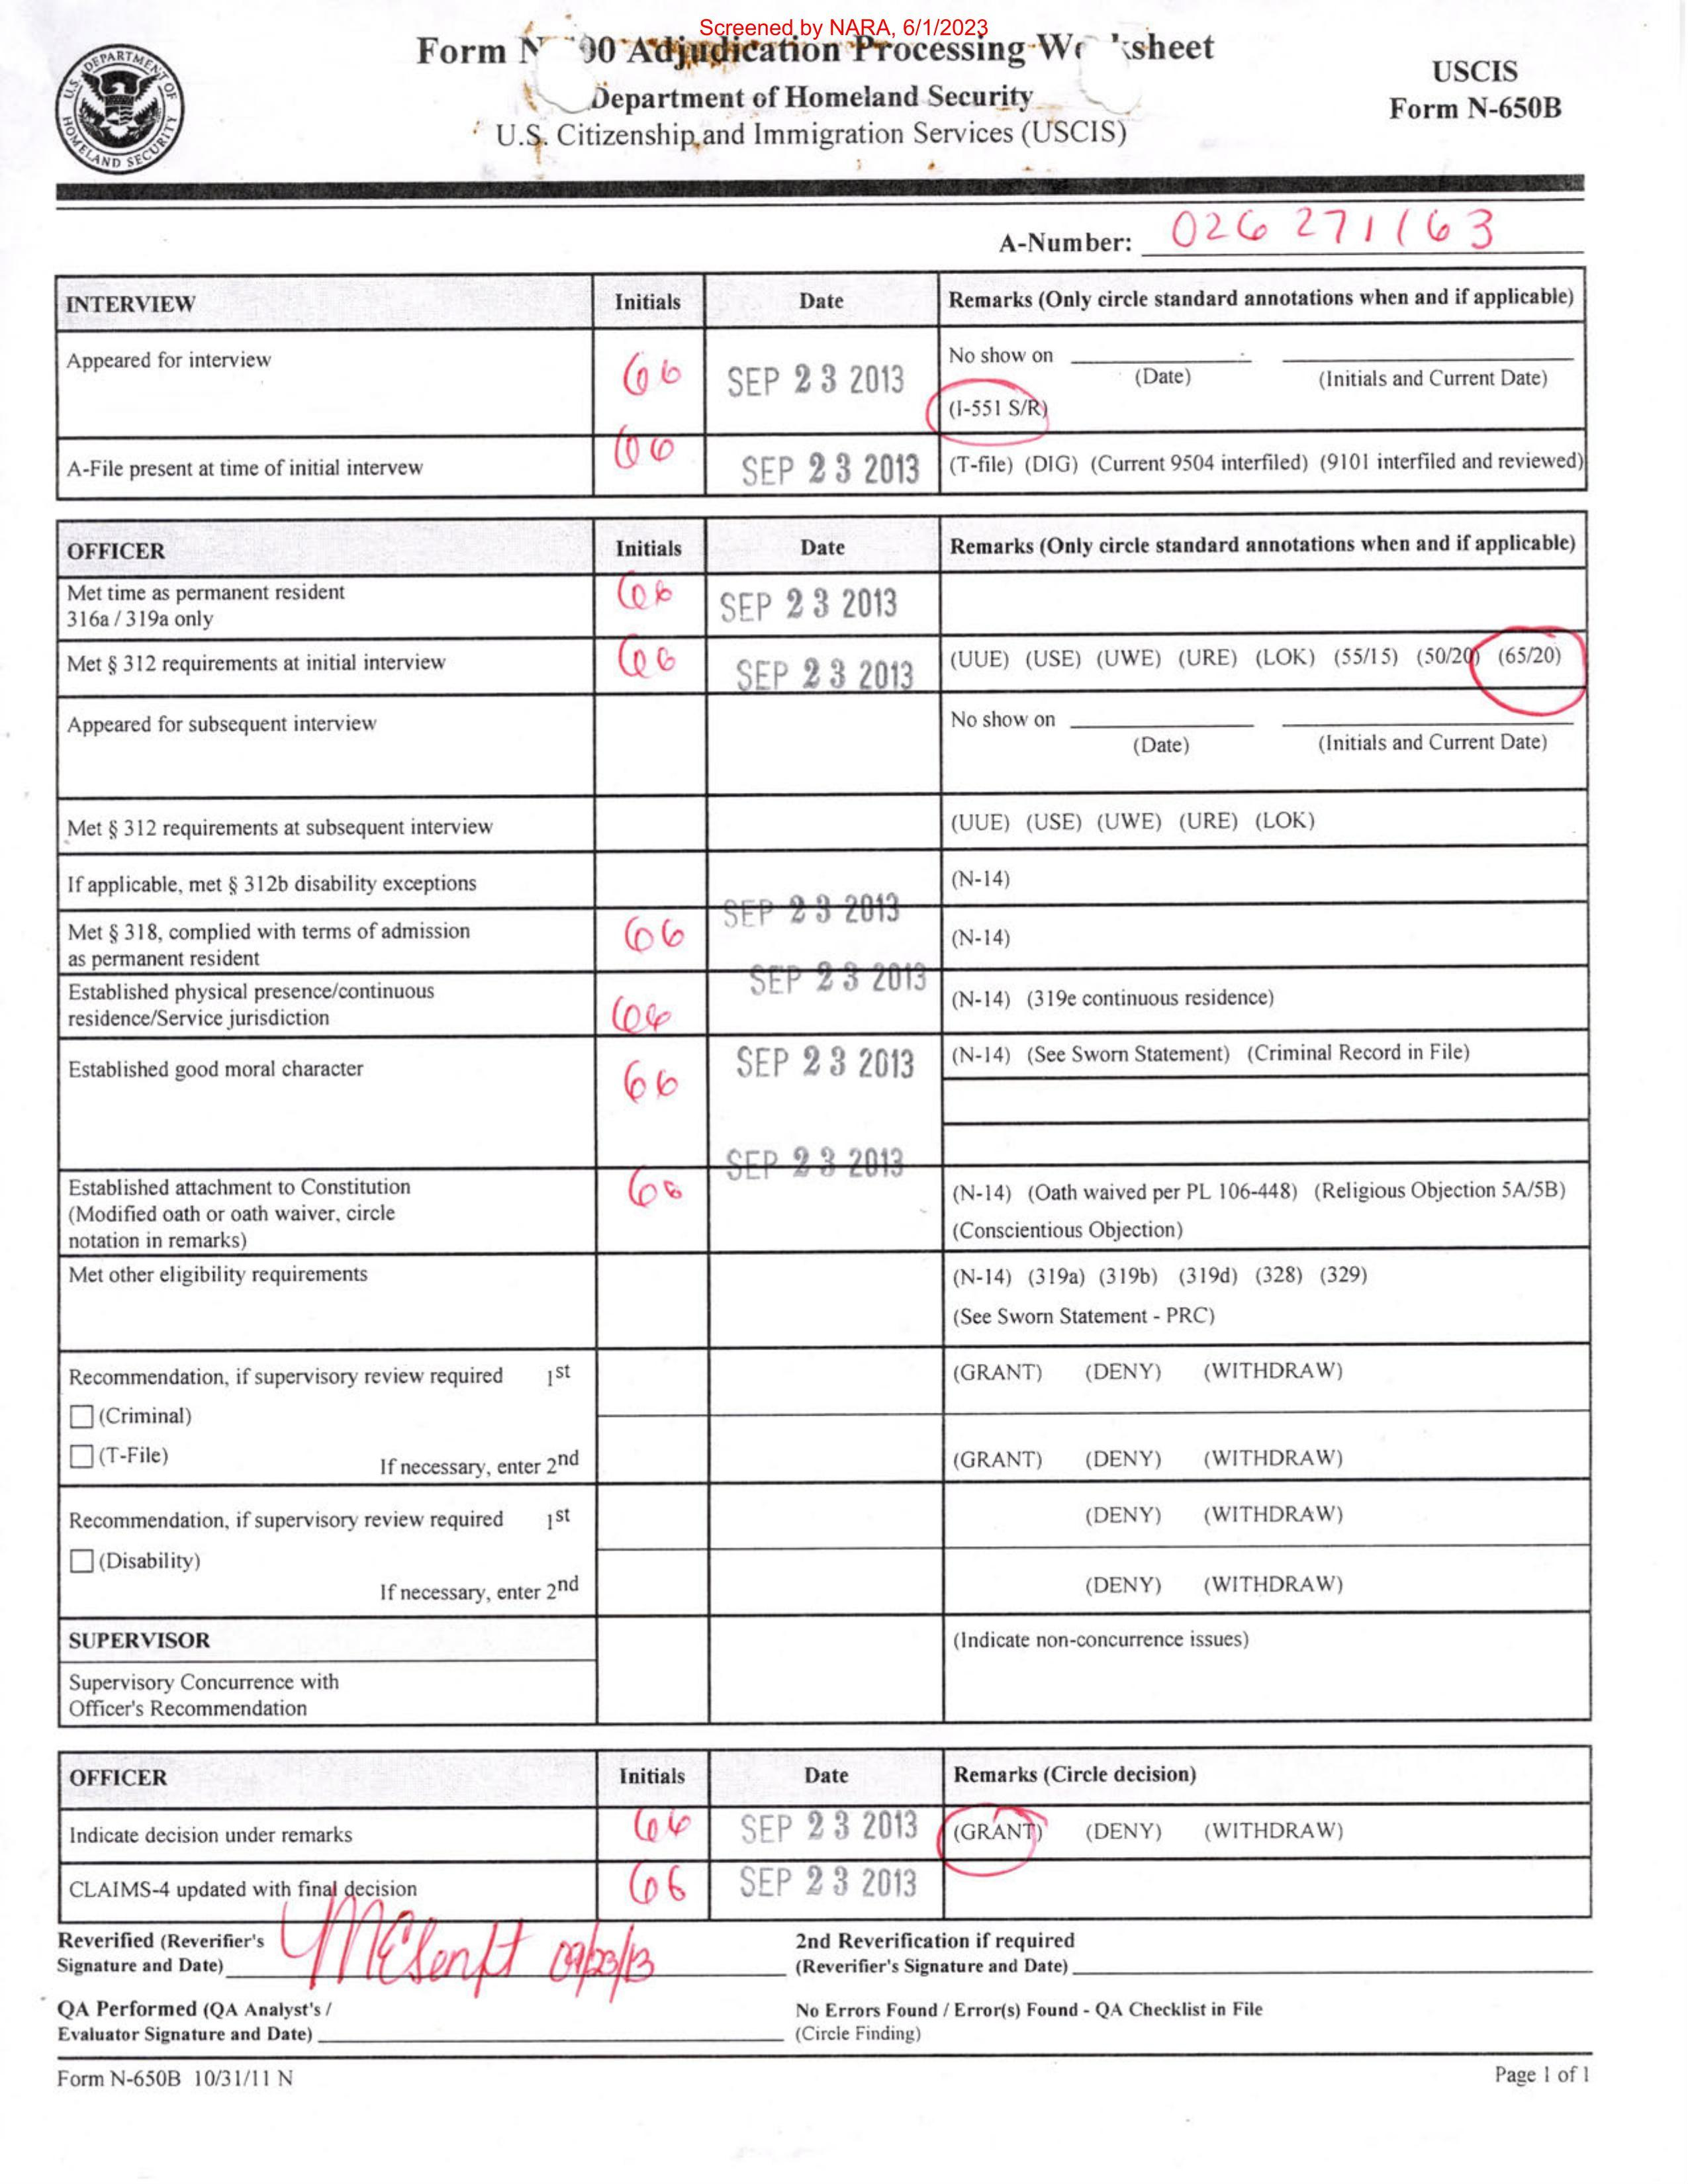 Screened by NARA, 6/1/2023
Form N 90 Adjudication Processing sheet
Department of Homeland Security
U.S. Citizenship and Immigration Services (USCIS)
USCIS
Form N-650B
U.S. DEPARTMENT OF HOMELAND SECURITY
A-Number: 026 271163
INTERVIEW Initials Date Remarks (Only circle standard annotations when and if applicable)
Appeared for interview SEP 23 2013 No show on
(Date) (Initials and Current Date)
(I-551 S/R)
A-File present at time of initial intervew SEP 23 2013 (T-file) (DIG) (Current 9504 interfiled) (9101 interfiled and reviewed)
OFFICER Initials Date Remarks (Only circle standard annotations when and if applicable)
Met time as permanent resident
316a / 319a only SEP 23 2013
Met § 312 requirements at initial interview SEP 23 2013 (UUE) (USE) (UWE) (URE) (LOK) (55/15) (50/20) (65/20)
Appeared for subsequent interview No show on
(Date) (Initials and Current Date)
Met § 312 requirements at subsequent interview (UUE) (USE) (UWE) (URE) (LOK)
If applicable, met § 312b disability exceptions (N-14)
SEP 23 2013
Met § 318, complied with terms of admission
as permanent resident (N-14)
SEP 23 2013
Established physical presence/continuous
residence/Service jurisdiction (N-14) (319e continuous residence)
Established good moral character SEP 23 2013 (N-14) (See Sworn Statement) (Criminal Record in File)
SEP 23 2013
Established attachment to Constitution
(Modified oath or oath waiver, circle
notation in remarks) (N-14) (Oath waived per PL 106-448) (Religious Objection 5A/5B)
(Conscientious Objection)
Met other eligibility requirements (N-14) (319a) (319b) (319d) (328) (329)
(See Sworn Statement - PRC)
Recommendation, if supervisory review required 1st (GRANT) (DENY) (WITHDRAW)
(Criminal)
(T-File) If necessary, enter 2nd (GRANT) (DENY) (WITHDRAW)
Recommendation, if supervisory review required 1st (DENY) (WITHDRAW)
(Disability)
If necessary, enter 2nd (DENY) (WITHDRAW)
SUPERVISOR (Indicate non-concurrence issues)
Supervisory Concurrence with
Officer's Recommendation
OFFICER Initials Date Remarks (Circle decision)
Indicate decision under remarks SEP 23 2013 (GRANT) (DENY) (WITHDRAW)
CLAIMS-4 updated with final decision SEP 23 2013
Reverified (Reverifier's
Signature and Date) 09/23/13
2nd Reverification if required
(Reverifier's Signature and Date)
QA Performed (QA Analyst's /
Evaluator Signature and Date)
No Errors Found / Error(s) Found - QA Checklist in File
(Circle Finding)
Form N-650B 10/31/11 N Page 1 of 1